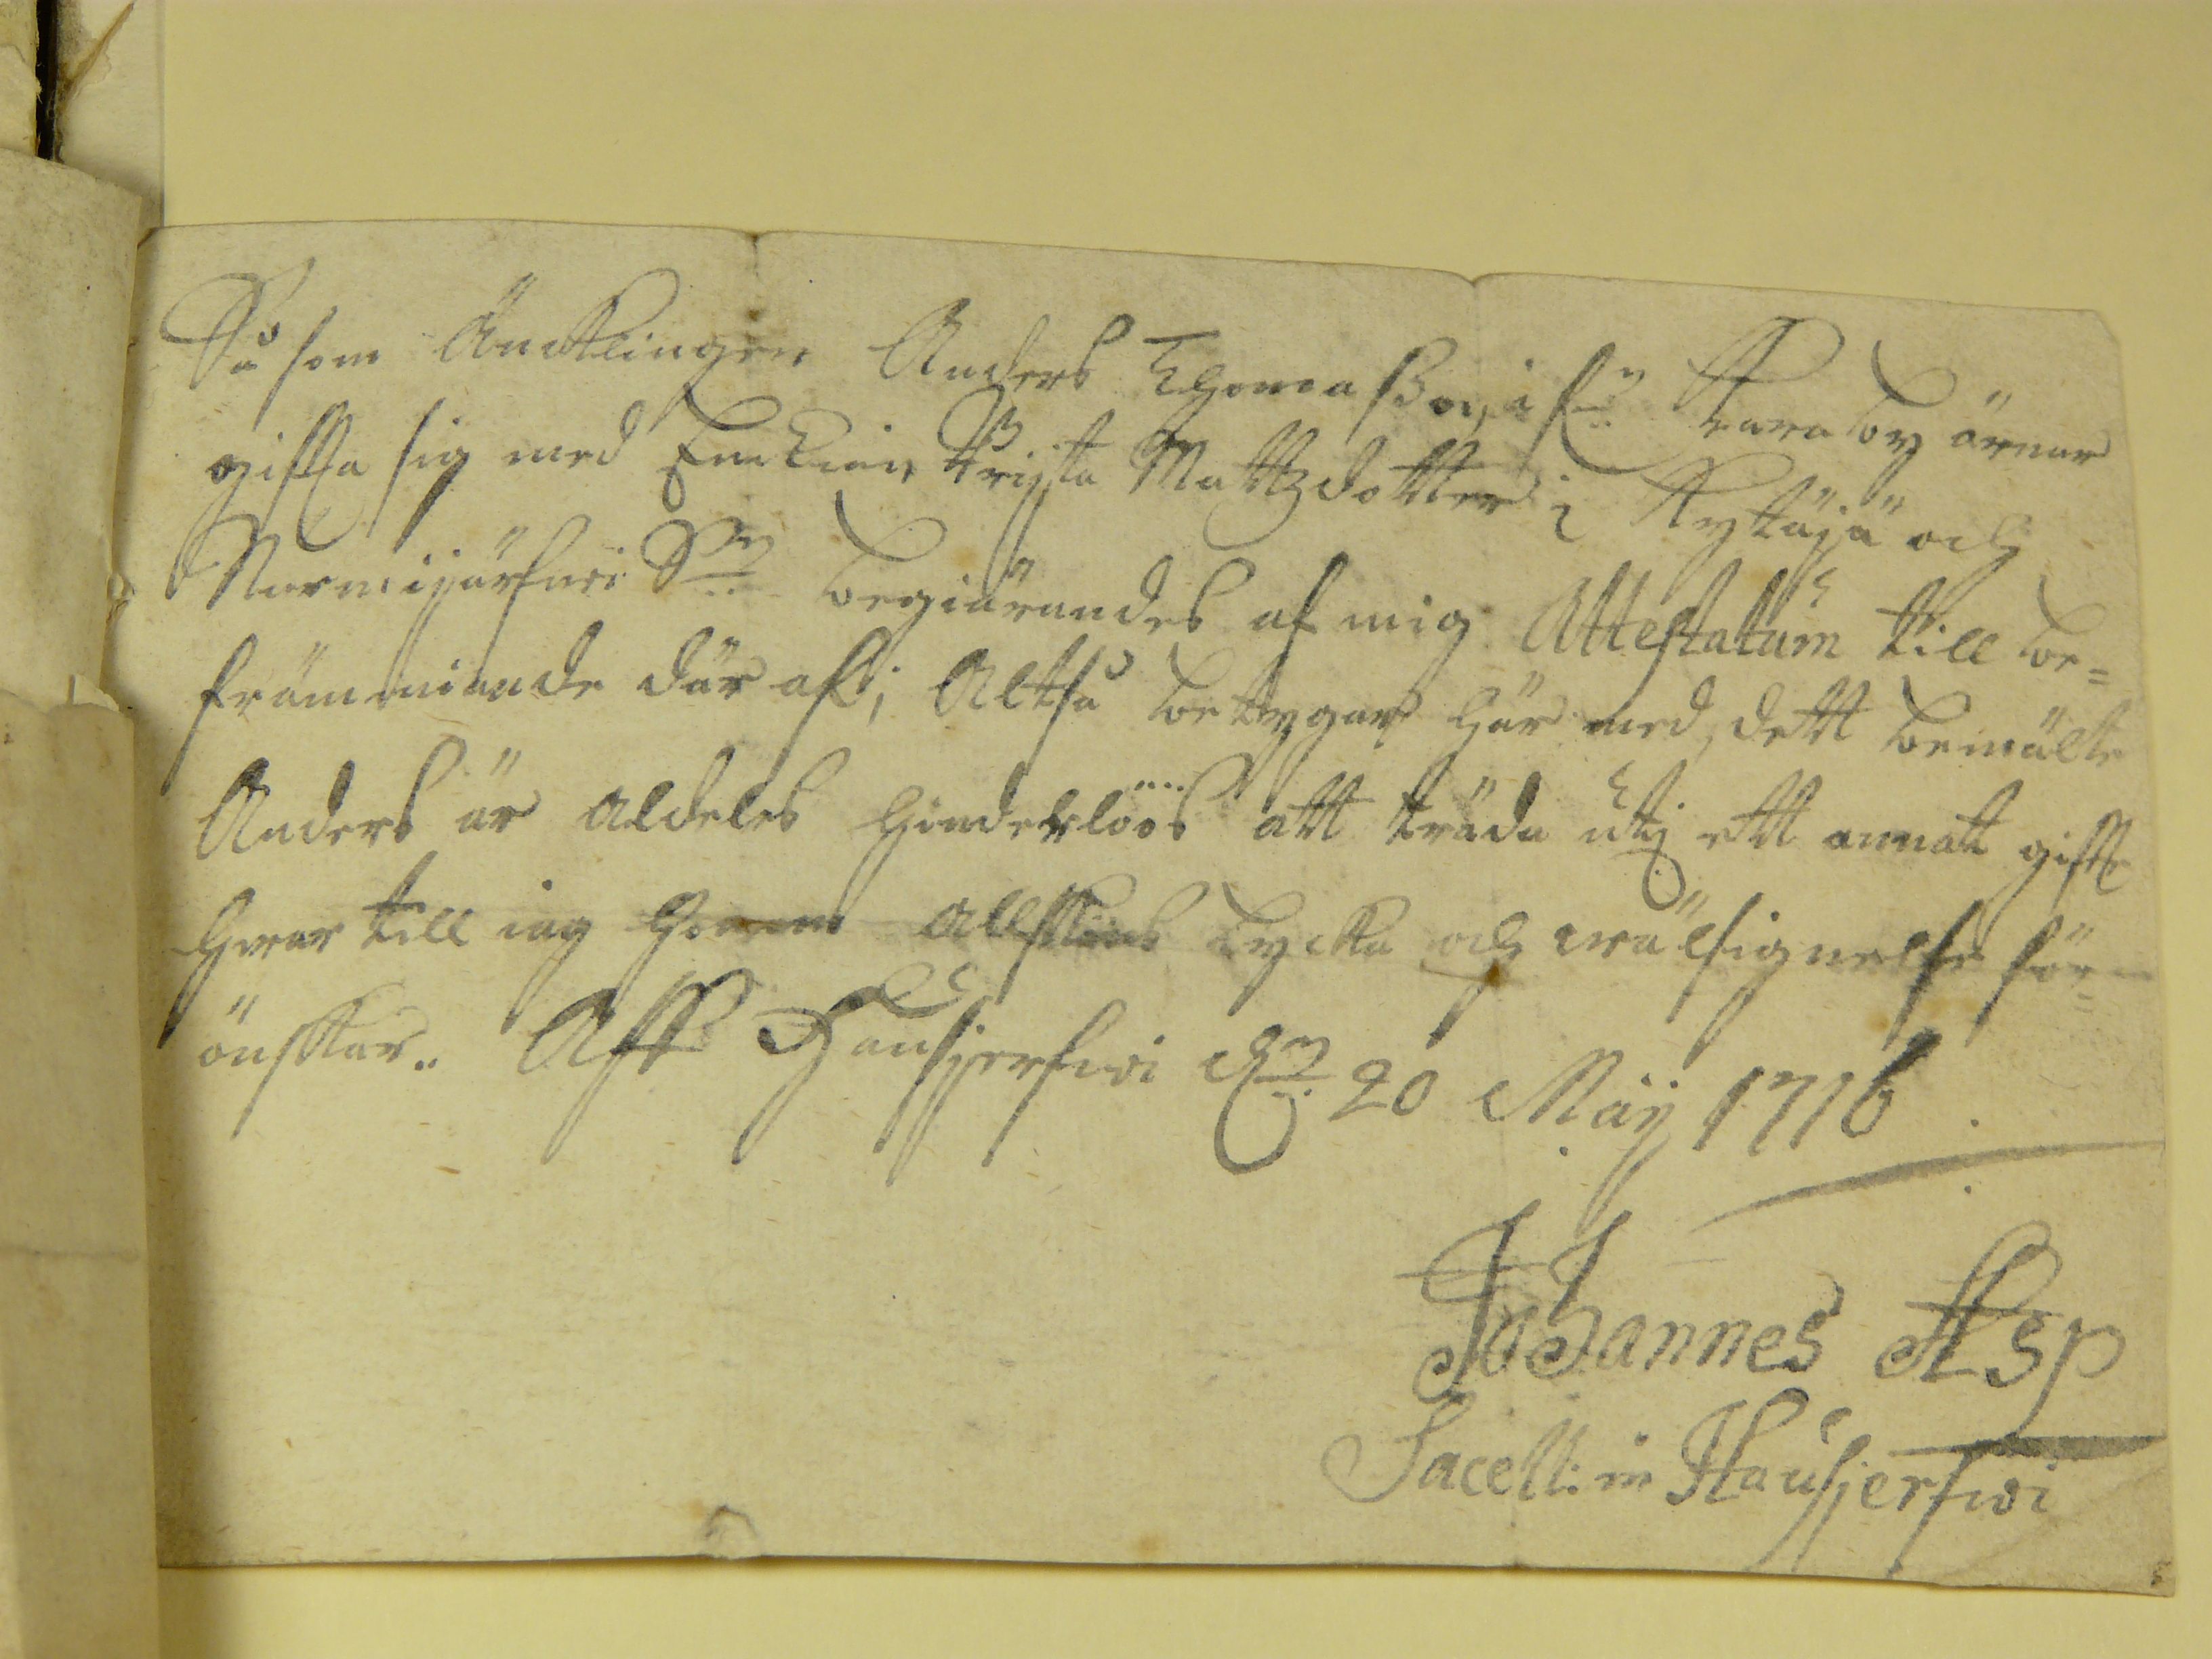 Så som Äncklingen Anders Thomasson i frn Karaby ärnar
gifta sig med Enckian Brijta Mattzdotter i Kytäjä och
Nurmijärfwi Sn begiärandes af mig Attestatum till be=
främmiande där af; Altså betygar här med, dett bemälte
Anders är aldeles hinderlöös att träda utij ett annat gifte
hwar till iag honom allsköns lycka och wälsignelse för=
önskar. Aff Hausjerfwi d 20 Maij 1716
Johannes Asp
Sacell: in Hausjerfwi